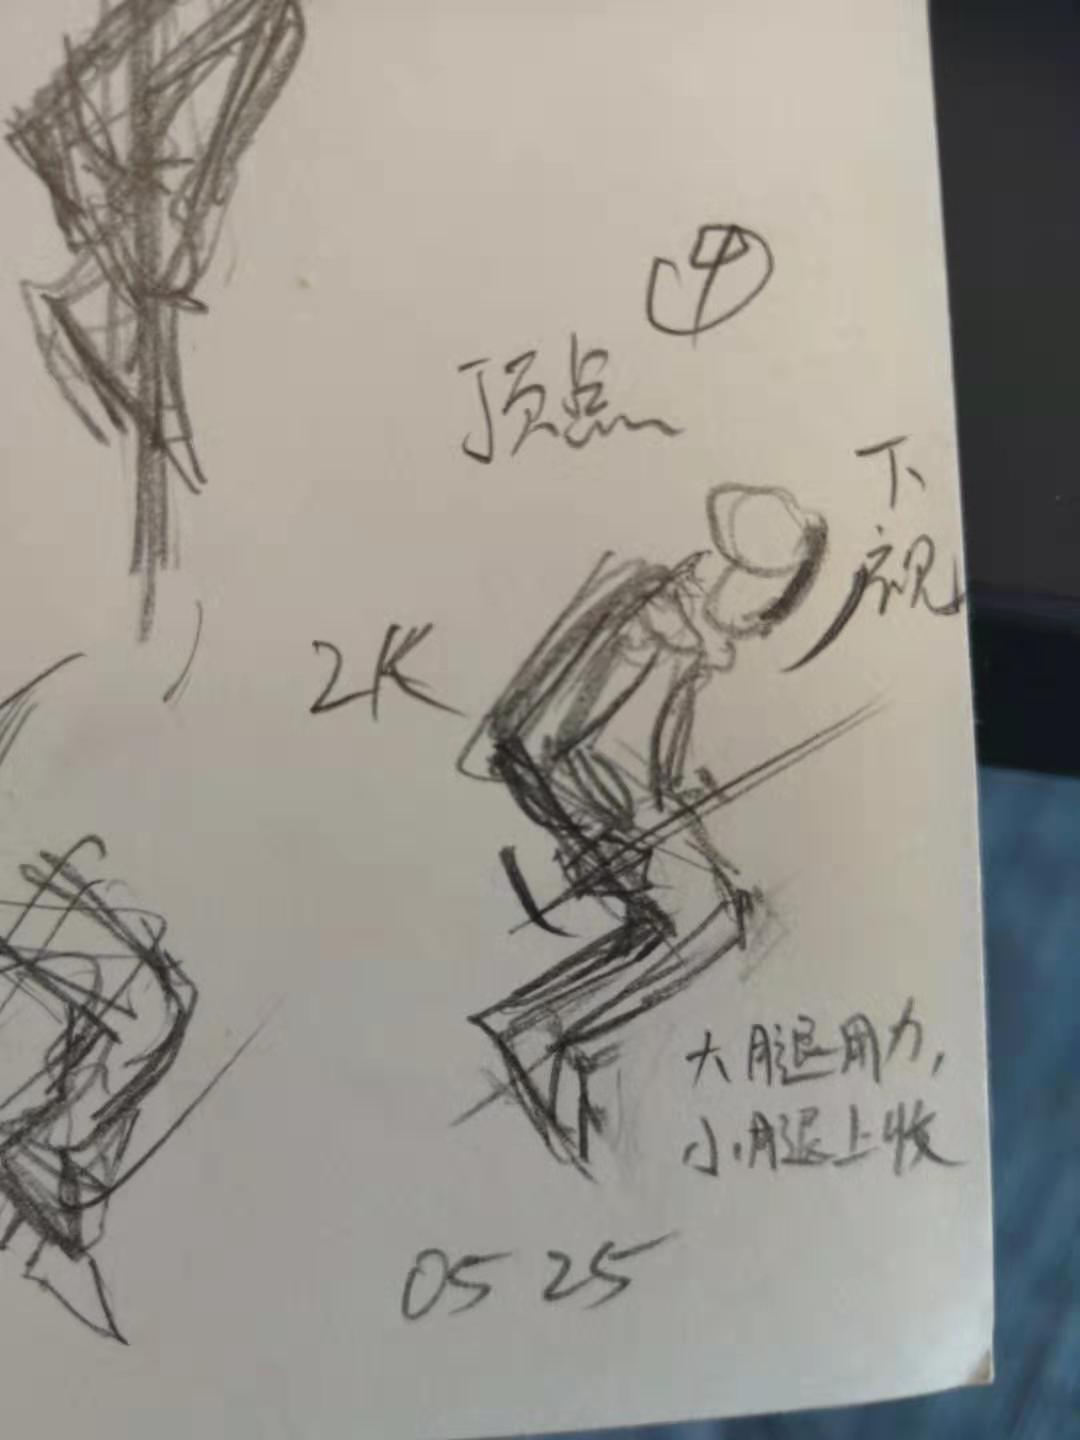 ④
顶点
下视
2K
大腿用力，
小腿上收
05 25